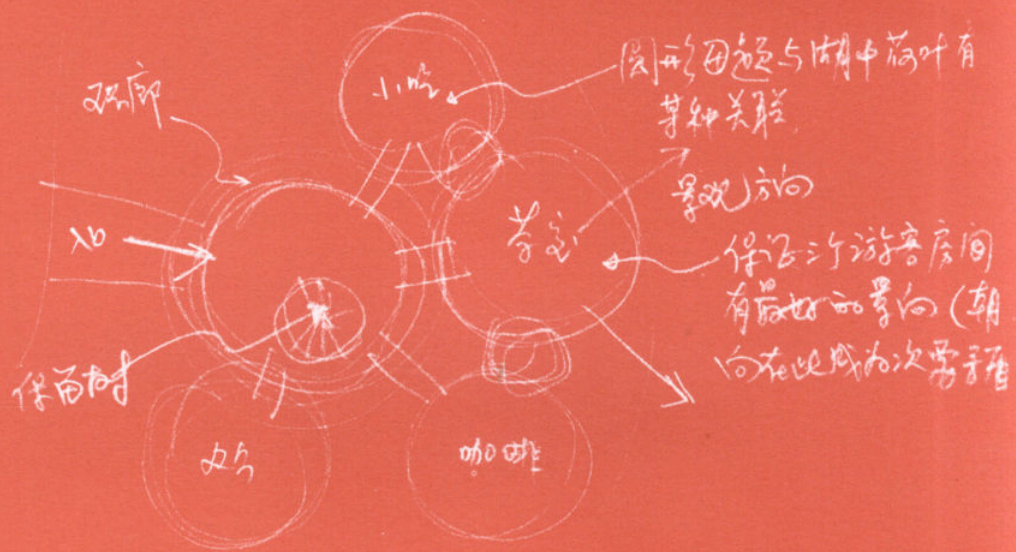 小吃
圆形母题与湖中荷叶有
某种关联
环廊
景观方向
茶室
入口
保证三个游客房间
有最好的景向(朝
向在此成为次要矛盾
保留树
办公
咖啡